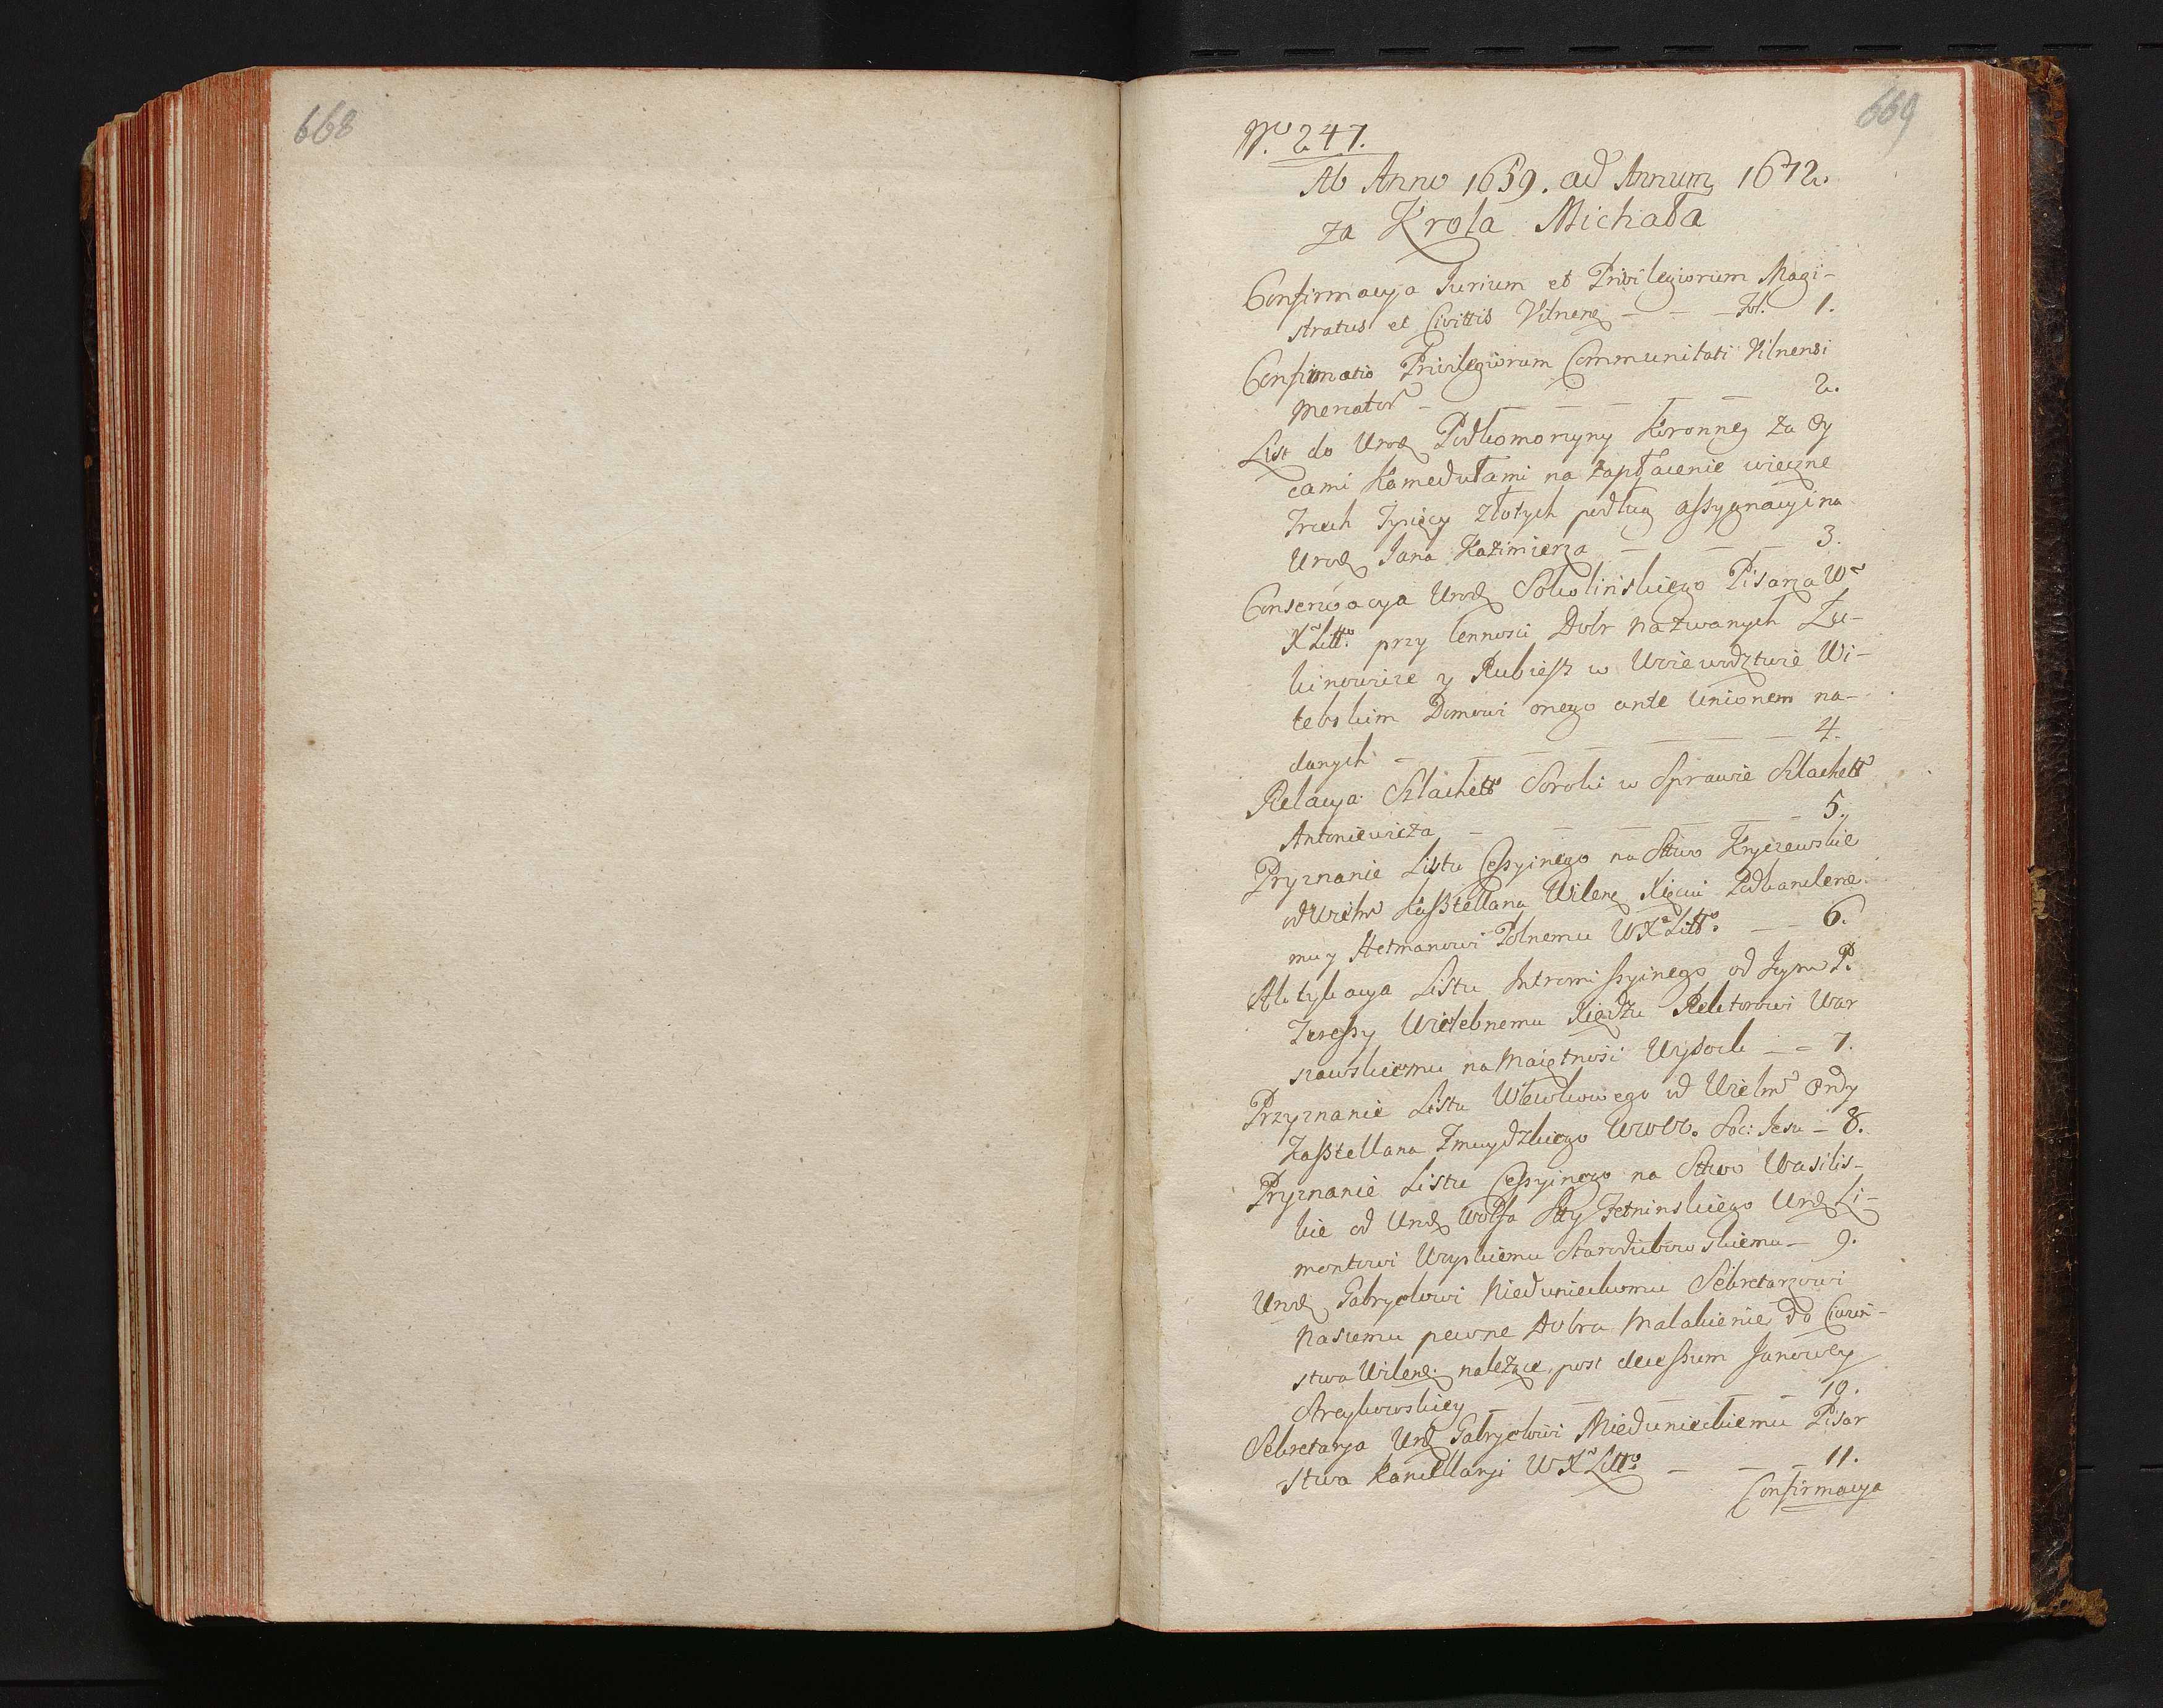 668
669
No. 247.
Ab Anno 1659. ad Annum 1672.
za Krola Michała
Confirmacya Jurium et Privilegiorum Magi-
stratus et Civittis Vilnens Fol. 1.
Confirmatio Privilegiorum Communitati Vilnensi
Mercator 2.
List do Urod Podkomorzyny Koronney za Oy
cami Kamedułami na zapłacenie wieczne
Trzech Tysięcy Złotych podług assygnacyi na
Urod Jana Kazimierza 3.
Conserwacya Urod Sokolinskiego Pisarza W
X Litto. przy lennosci Dobr nazwanych Łu-
kinowicze y Rubiesz w Woiewodztwie Wi-
tebskim Domowi onego ante Unionem na-
danych 4.
Relacya Szlachett Soroki w Sprawie Szlachett
Antoniewicza 5.
Pryznanie Listu Cessyinego na Sttwo Kryczewskie
od Wielm Kasztellana Wilen Xięciu Podkanclerze
mu y Hetmanowi Polnemu W X Litto. 6.
Aktykacya Listu Intromissyinego od Jeym P.
Teressy Wielebnemu Xiędzu Rektorowi War
szawskiemu na Maiętnosi Wysock 7.
Przyznanie Listu Wlewkowego od Wielm Ordy
Kasztellana Zmuydzkiego WWW. Soc: Jesu 8.
Pryznanie Listu Cessyinego na Sttwo Wasilis-
kie od Urod Wolfa Stty Fetninskiego Urod Li-
montowi Woyskiemu Starodubowskiemu 9.
Urod Gabryelowi Niedunieckomu Sekretarzowi
Naszemu pewne Dobra Malakienie do Ciwun-
stwa Wilens. należące, post decessum Janowey
Stryikowskiey 10.
Sekretarya Urod Gabryelowi Niedunieckiemu Pisar
stwa Kancellaryi W X Litto. 11.
Confirmacya